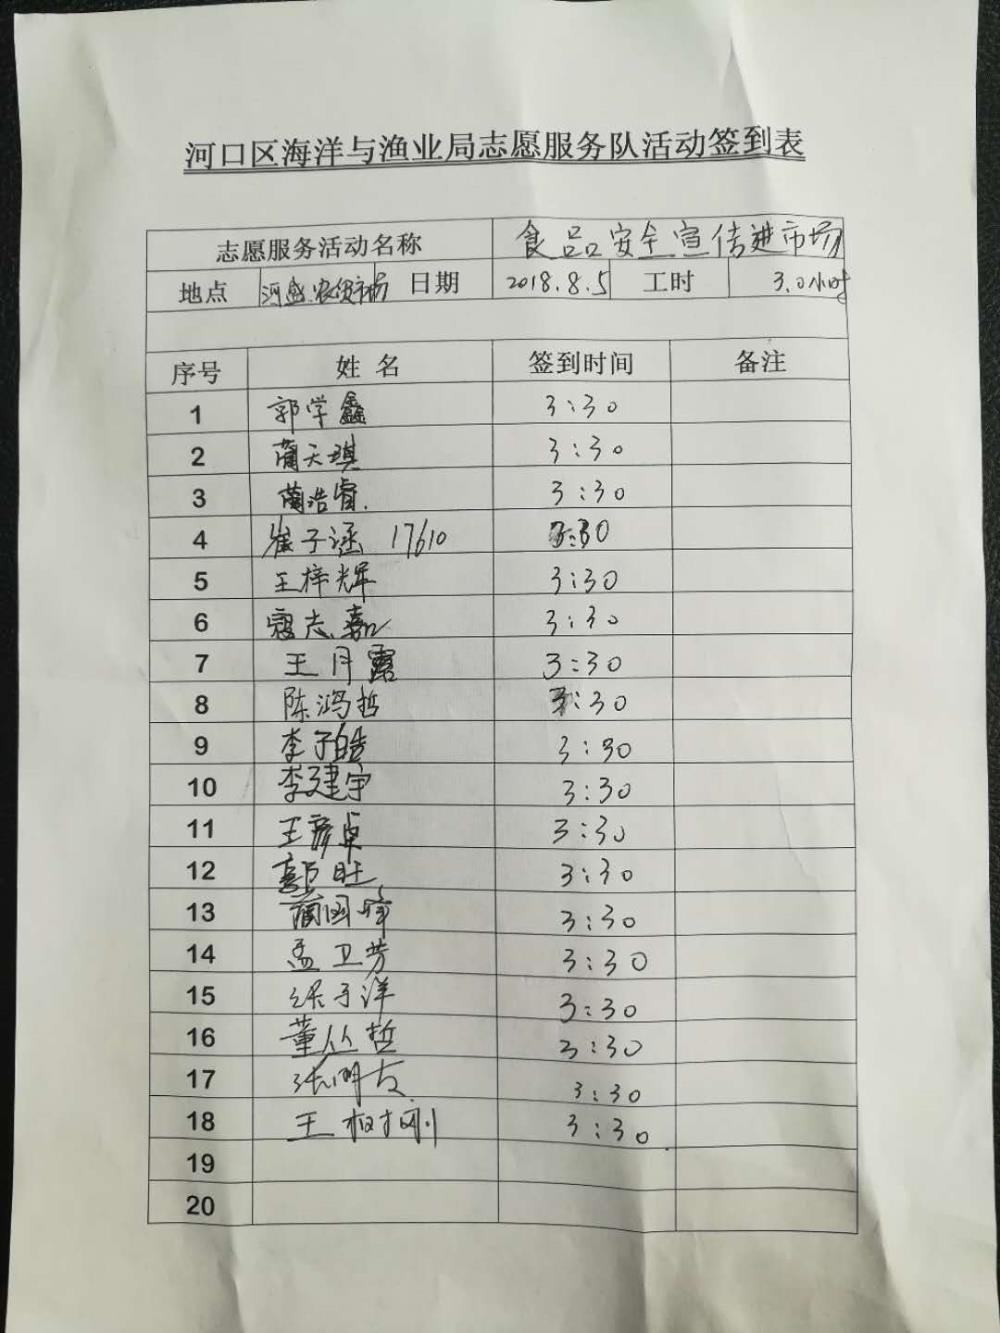 河口区海洋与渔业局志愿服务队活动签到表
志愿服务活动名称 食品安全宣传进市场
地点 河盛农贸市场 日期 2018.8.5 工时 3.0小时
序号 姓名 签到时间 备注
1 郭学鑫 3:30
2 蔺天琪 3:30
3 蔺浩睿 3:30
4 崔子涵 17610 3:30
5 王梓辉 3:30
6 寇志嘉 3:30
7 王月露 3:30
8 陈鸿哲 3:30
9 李子皓 3:30
10 李建宇 3:30
11 王彦卓 3:30
12 郭旺 3:30
13 蔺国峰 3:30
14 孟卫芳 3:30
15 子洋 3:30
16 董丛哲 3:30
17 张明友 3:30
18 王树刚 3:30
19
20